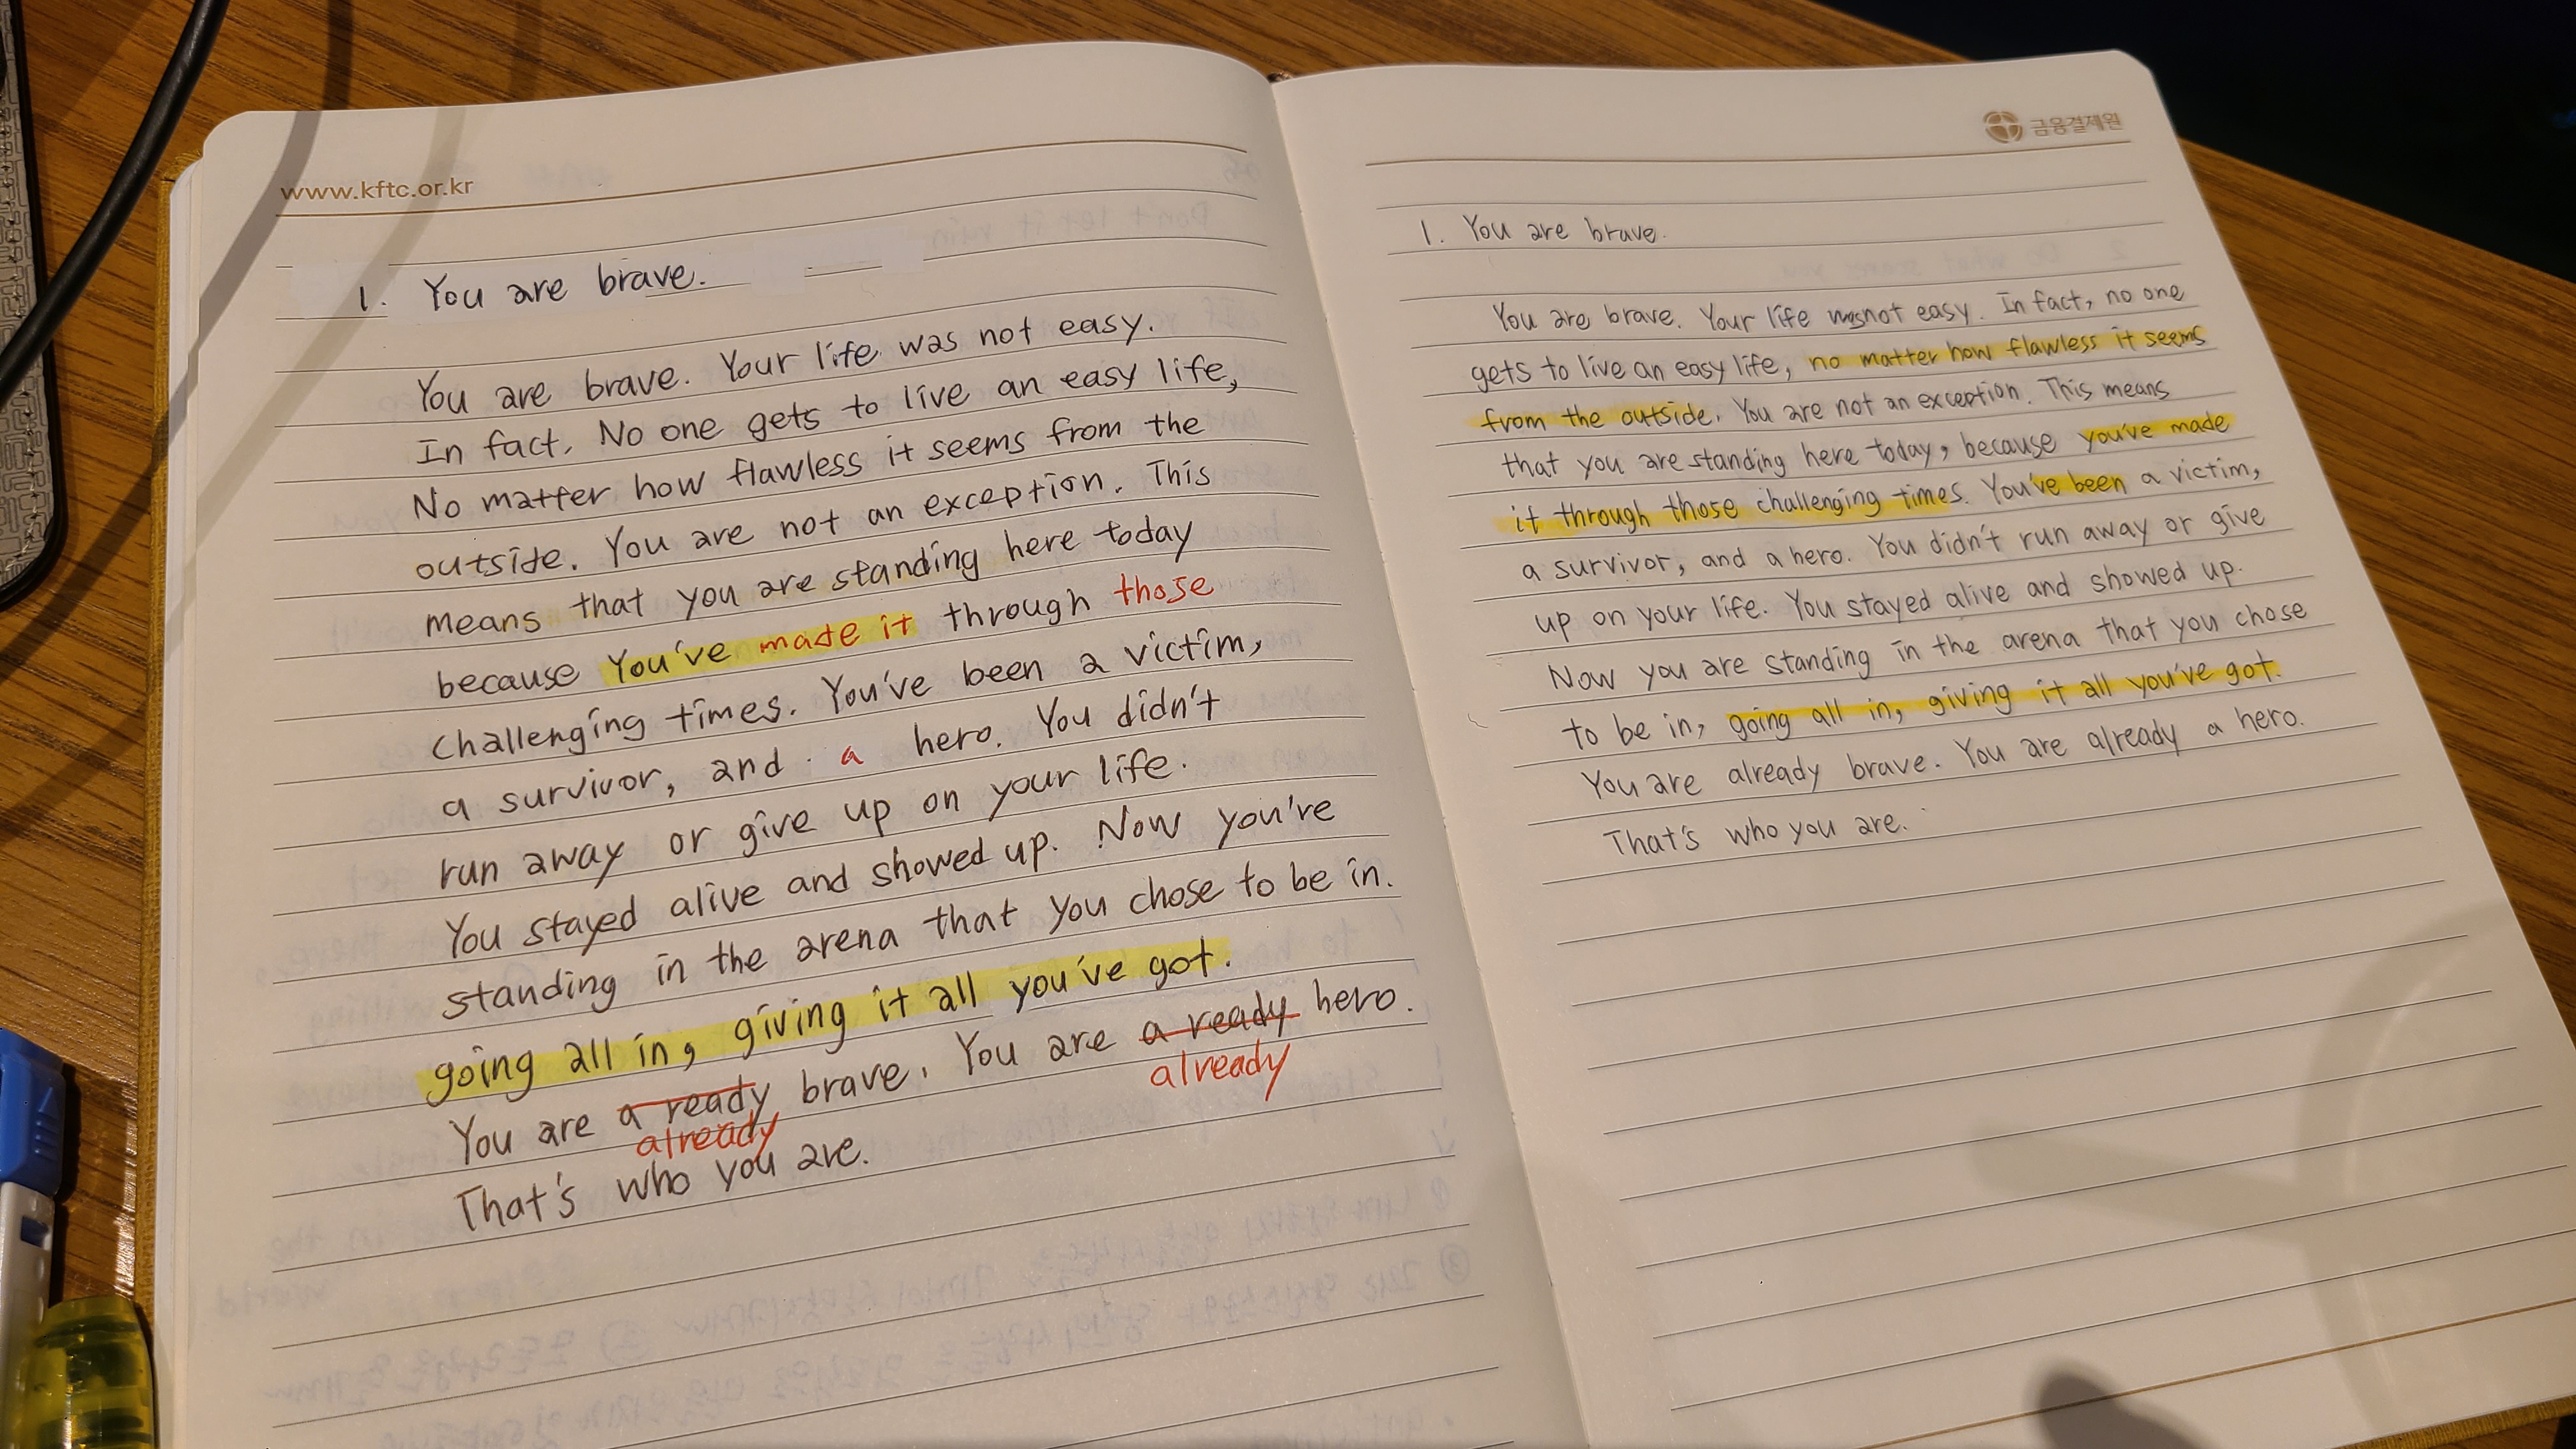 www.kftc.or.kr
1. You are brave.
You are brave. Your life was not easy.
In fact, No one gets to live an easy life,
No matter how flawless it seems from the
outside. You are not an exception. This
means that you are standing here today
because You've made it through those
challenging times. You've been a victim,
a survivor, and a hero. You didn't
run away or give up on your life.
You stayed alive and showed up. Now you're
standing in the arena that you chose to be in.
going all in, giving it all you've got.
You are a ready brave. You are a ready hero.
already
already
That's who you are.
금융결제원
1. You are brave.
You are brave. Your life was not easy. In fact, no one
gets to live an easy life, no matter how flawless it seems
from the outside. You are not an exception. This means
that you are standing here today, because you've made
it through those challenging times. You've been a victim,
a survivor, and a hero. You didn't run away or give
up on your life. You stayed alive and showed up.
Now you are standing in the arena that you chose
to be in, going all in, giving it all you've got.
You are already brave. You are already a hero.
That's who you are.